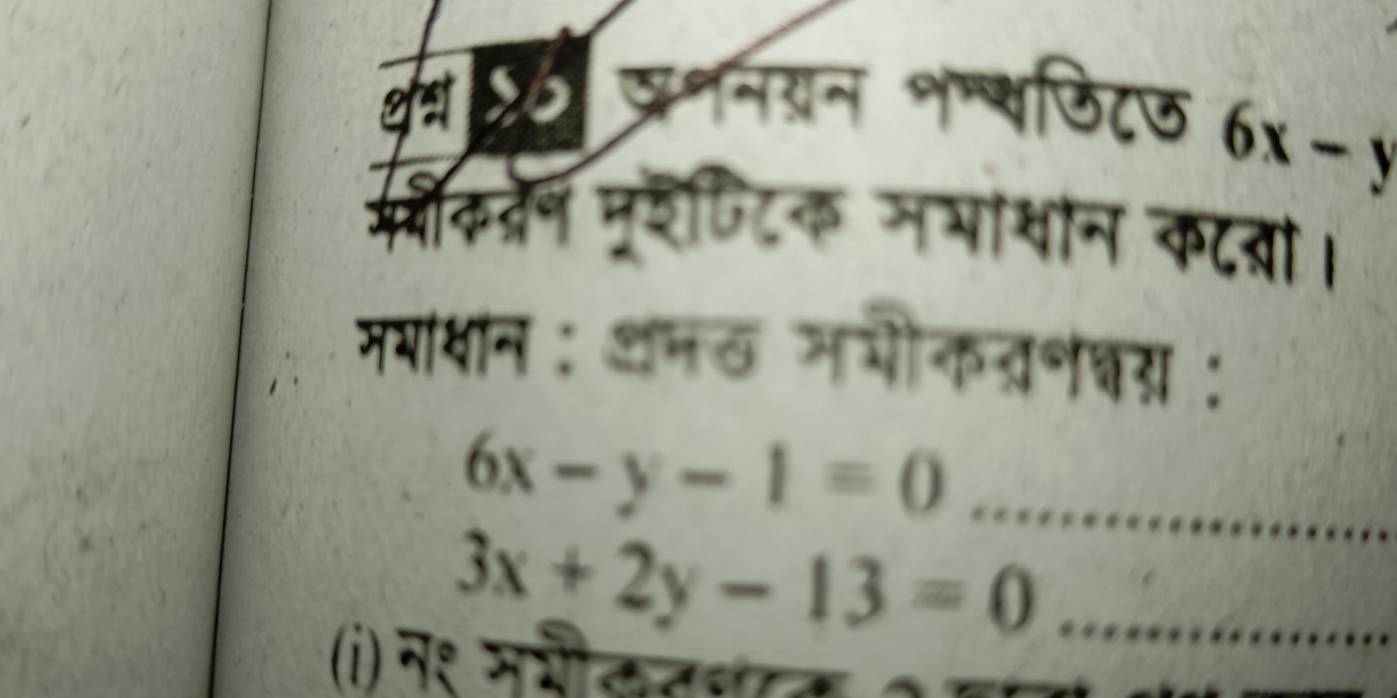 প্রশ্ন ১০ অপনয়ন পদ্ধতিতে 6x – y
সমীকরণ দুইটিকে সমাধান করো।
সমাধান : প্রদত্ত সমীকরণদ্বয় :
6x – y – 1 = 0 ....................
3x + 2y – 13 = 0 ....................
(i) নং সমীকরণকে